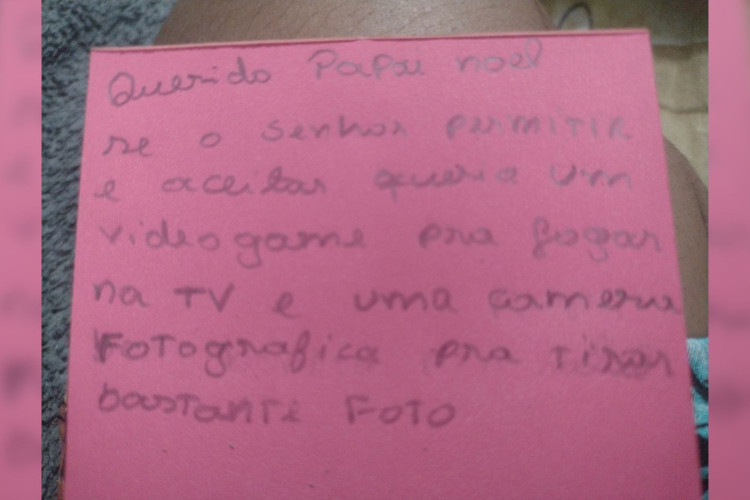 Querido Papai noel
se o senhor permitir
e aceitar queria um
videogame pra jogar
na TV e uma camera
Fotografica pra tirar
bastante Foto